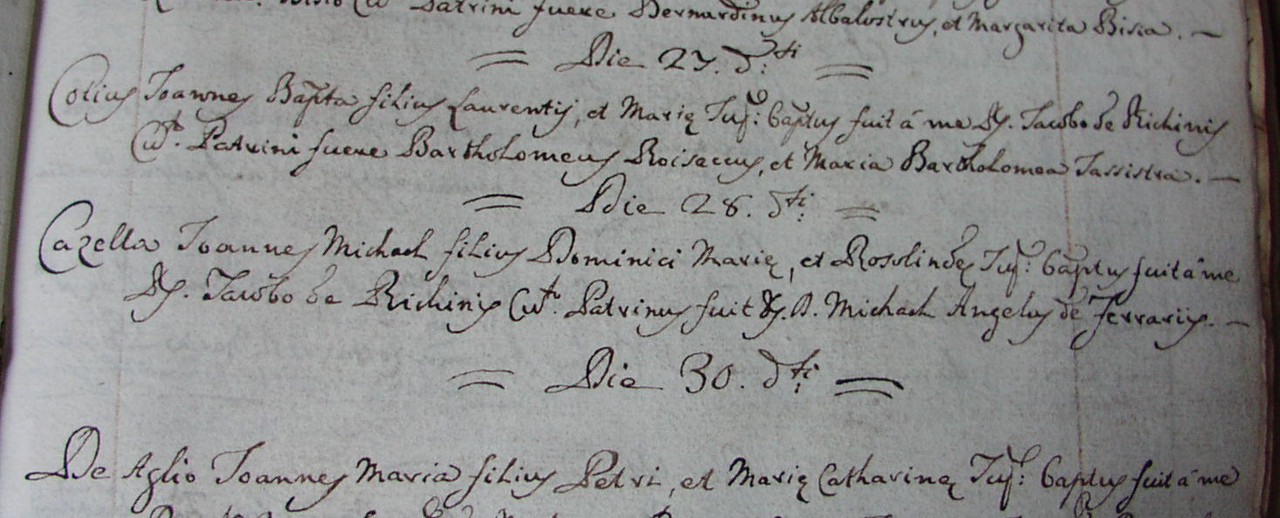 Patrini fuere Bernardinus Albalustrus, et Margarita Bisia. —
= Die 27. d.ti =
Colius Joannes Bapta filius Laurentij, et Marię Jug: baptus fuit á me Jacobo de Richinis
Cut. Patrini fuere Bartholomeus Roisaccus, et Maria Bartholomea Tassistra. —
= Die 28. d.ti =
Cazella Joannes Michael filius Dominici Marię, et Rosolindę Jug: baptus fuit á me
Jacobo de Richinis Cut. Patrinus fuit D. Michael Angelus de Ferraris. —
= Die 30. d.ti =
De Aglio Joannes Maria filius Petri, et Marię Catharinę Jug: baptus fuit á me